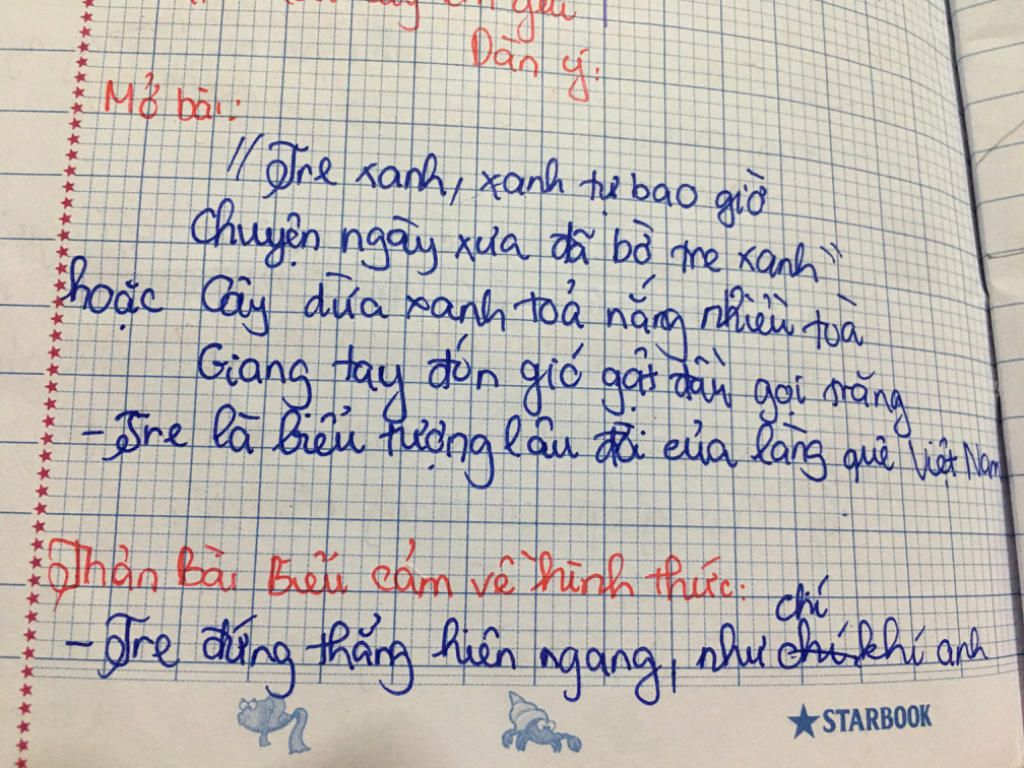 Dàn ý:
Mở bài:
"Tre xanh, xanh tự bao giờ
Chuyện ngày xưa đã bờ tre xanh"
hoặc Cây dừa xanh toả nắng nhiều toà
Giang tay đón gió gật đầu gọi trăng
- Tre là biểu tượng lâu đời của làng quê Việt Nam
Thân Bài Biểu cảm về hình thức:
chí
- Tre đứng thẳng hiên ngang, như chí khí anh
STARBOOK